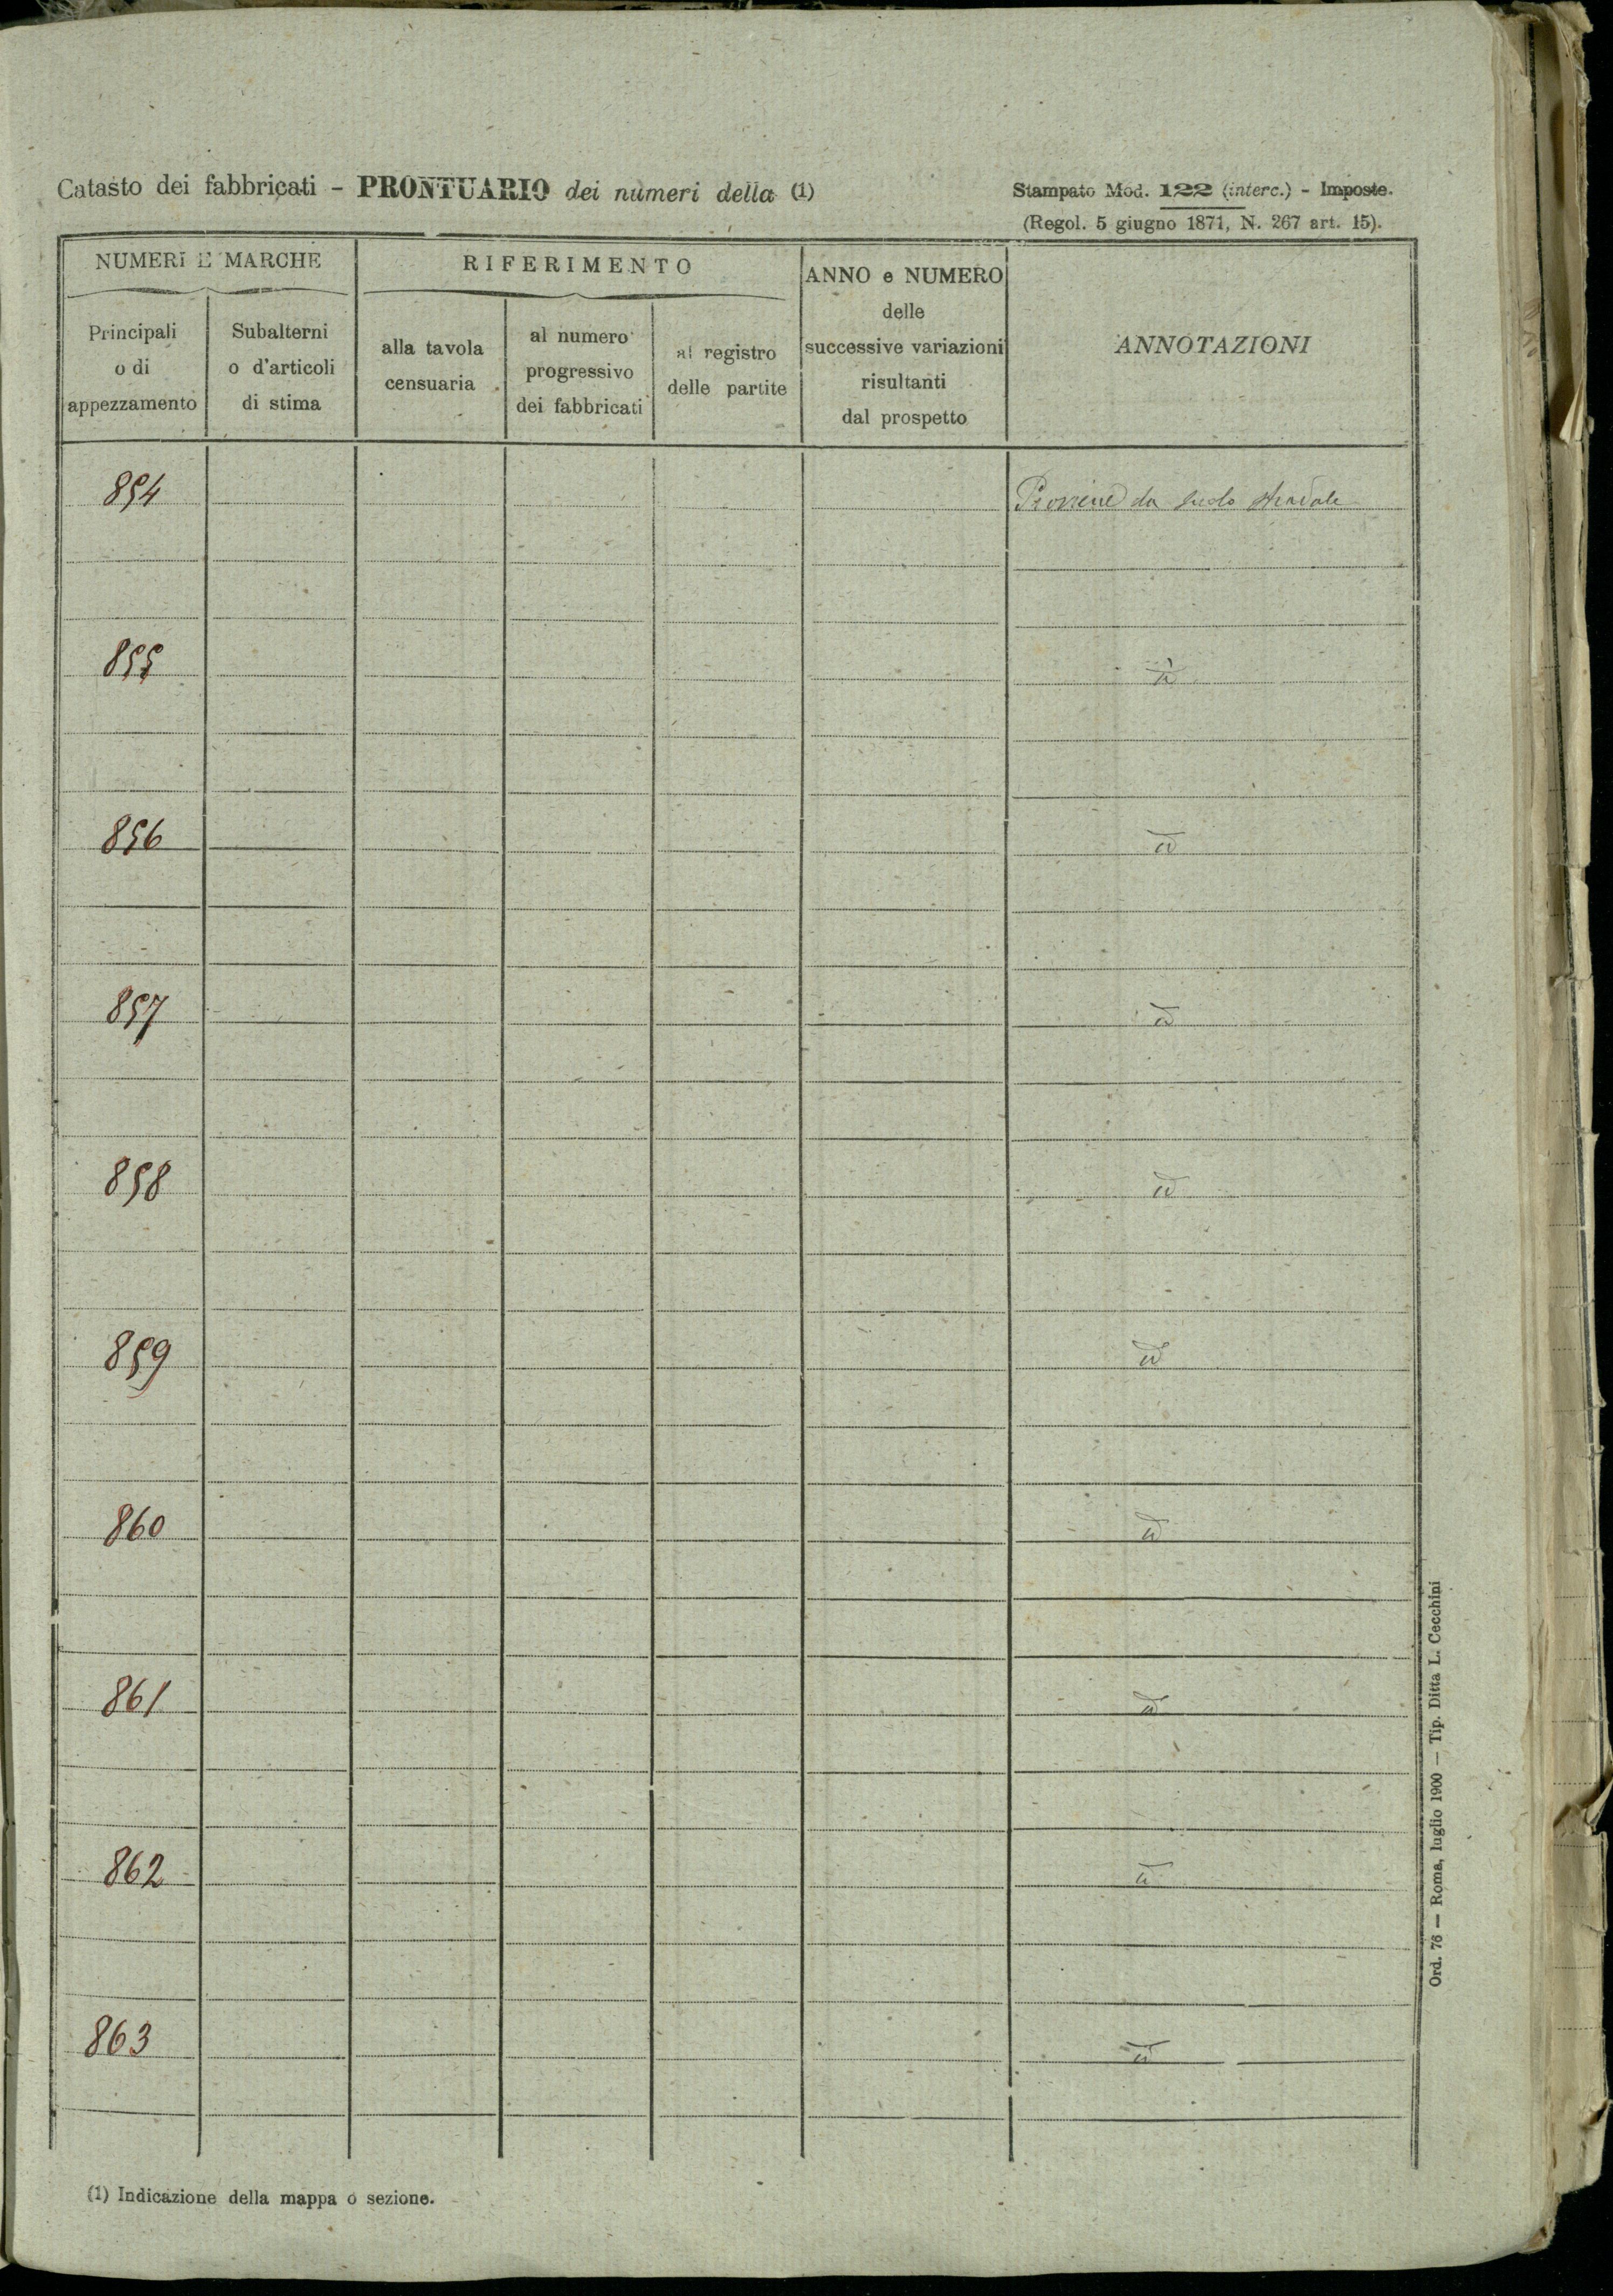 Catasto dei fabbricati - PRONTUARIO dei numeri della (1)
Stampato Mod. 122 (interc.) - Imposte.
(Regol. 5 giugno 1871, N. 267 art. 15).
NUMERI E MARCHE
RIFERIMENTO
ANNO e NUMERO
delle
successive variazioni
risultanti
dal prospetto
ANNOTAZIONI
Principali
o di
appezzamento
Subalterni
o d'articoli
di stima
alla tavola
censuaria
al numero
progressivo
dei fabbricati
al registro
delle partite
854 Proviene da suolo stradale
855 id
856 id
857 id
858 id
859 id
860 id
861 id
862 id
863 id
(1) Indicazione della mappa o sezione.
Ord. 76 — Roma, luglio 1900 — Tip. Ditta L. Cecchini